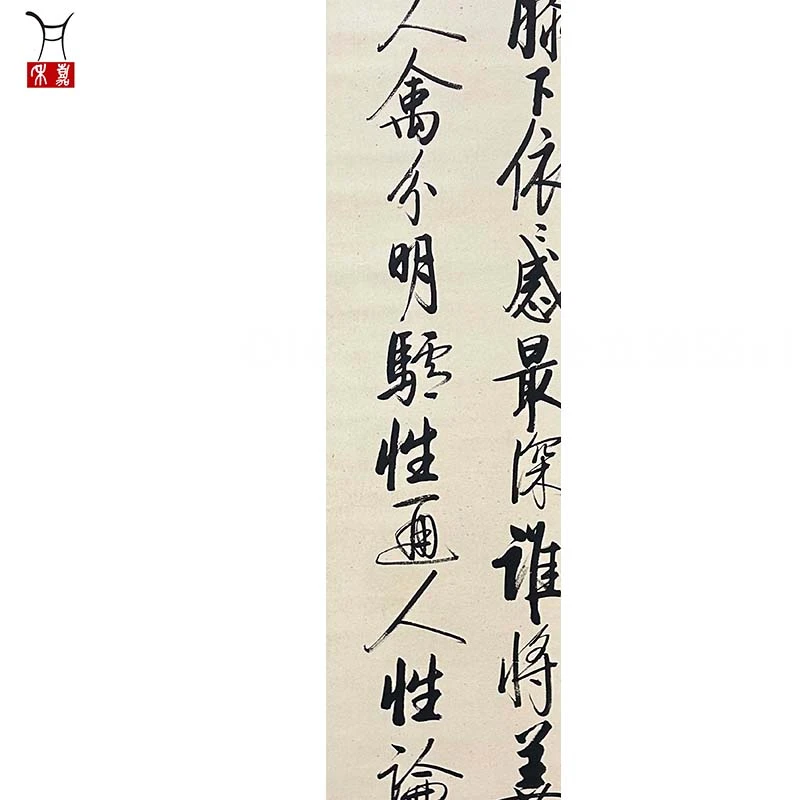 膝下依〻感最深誰將
人禽分明驢性通人性論